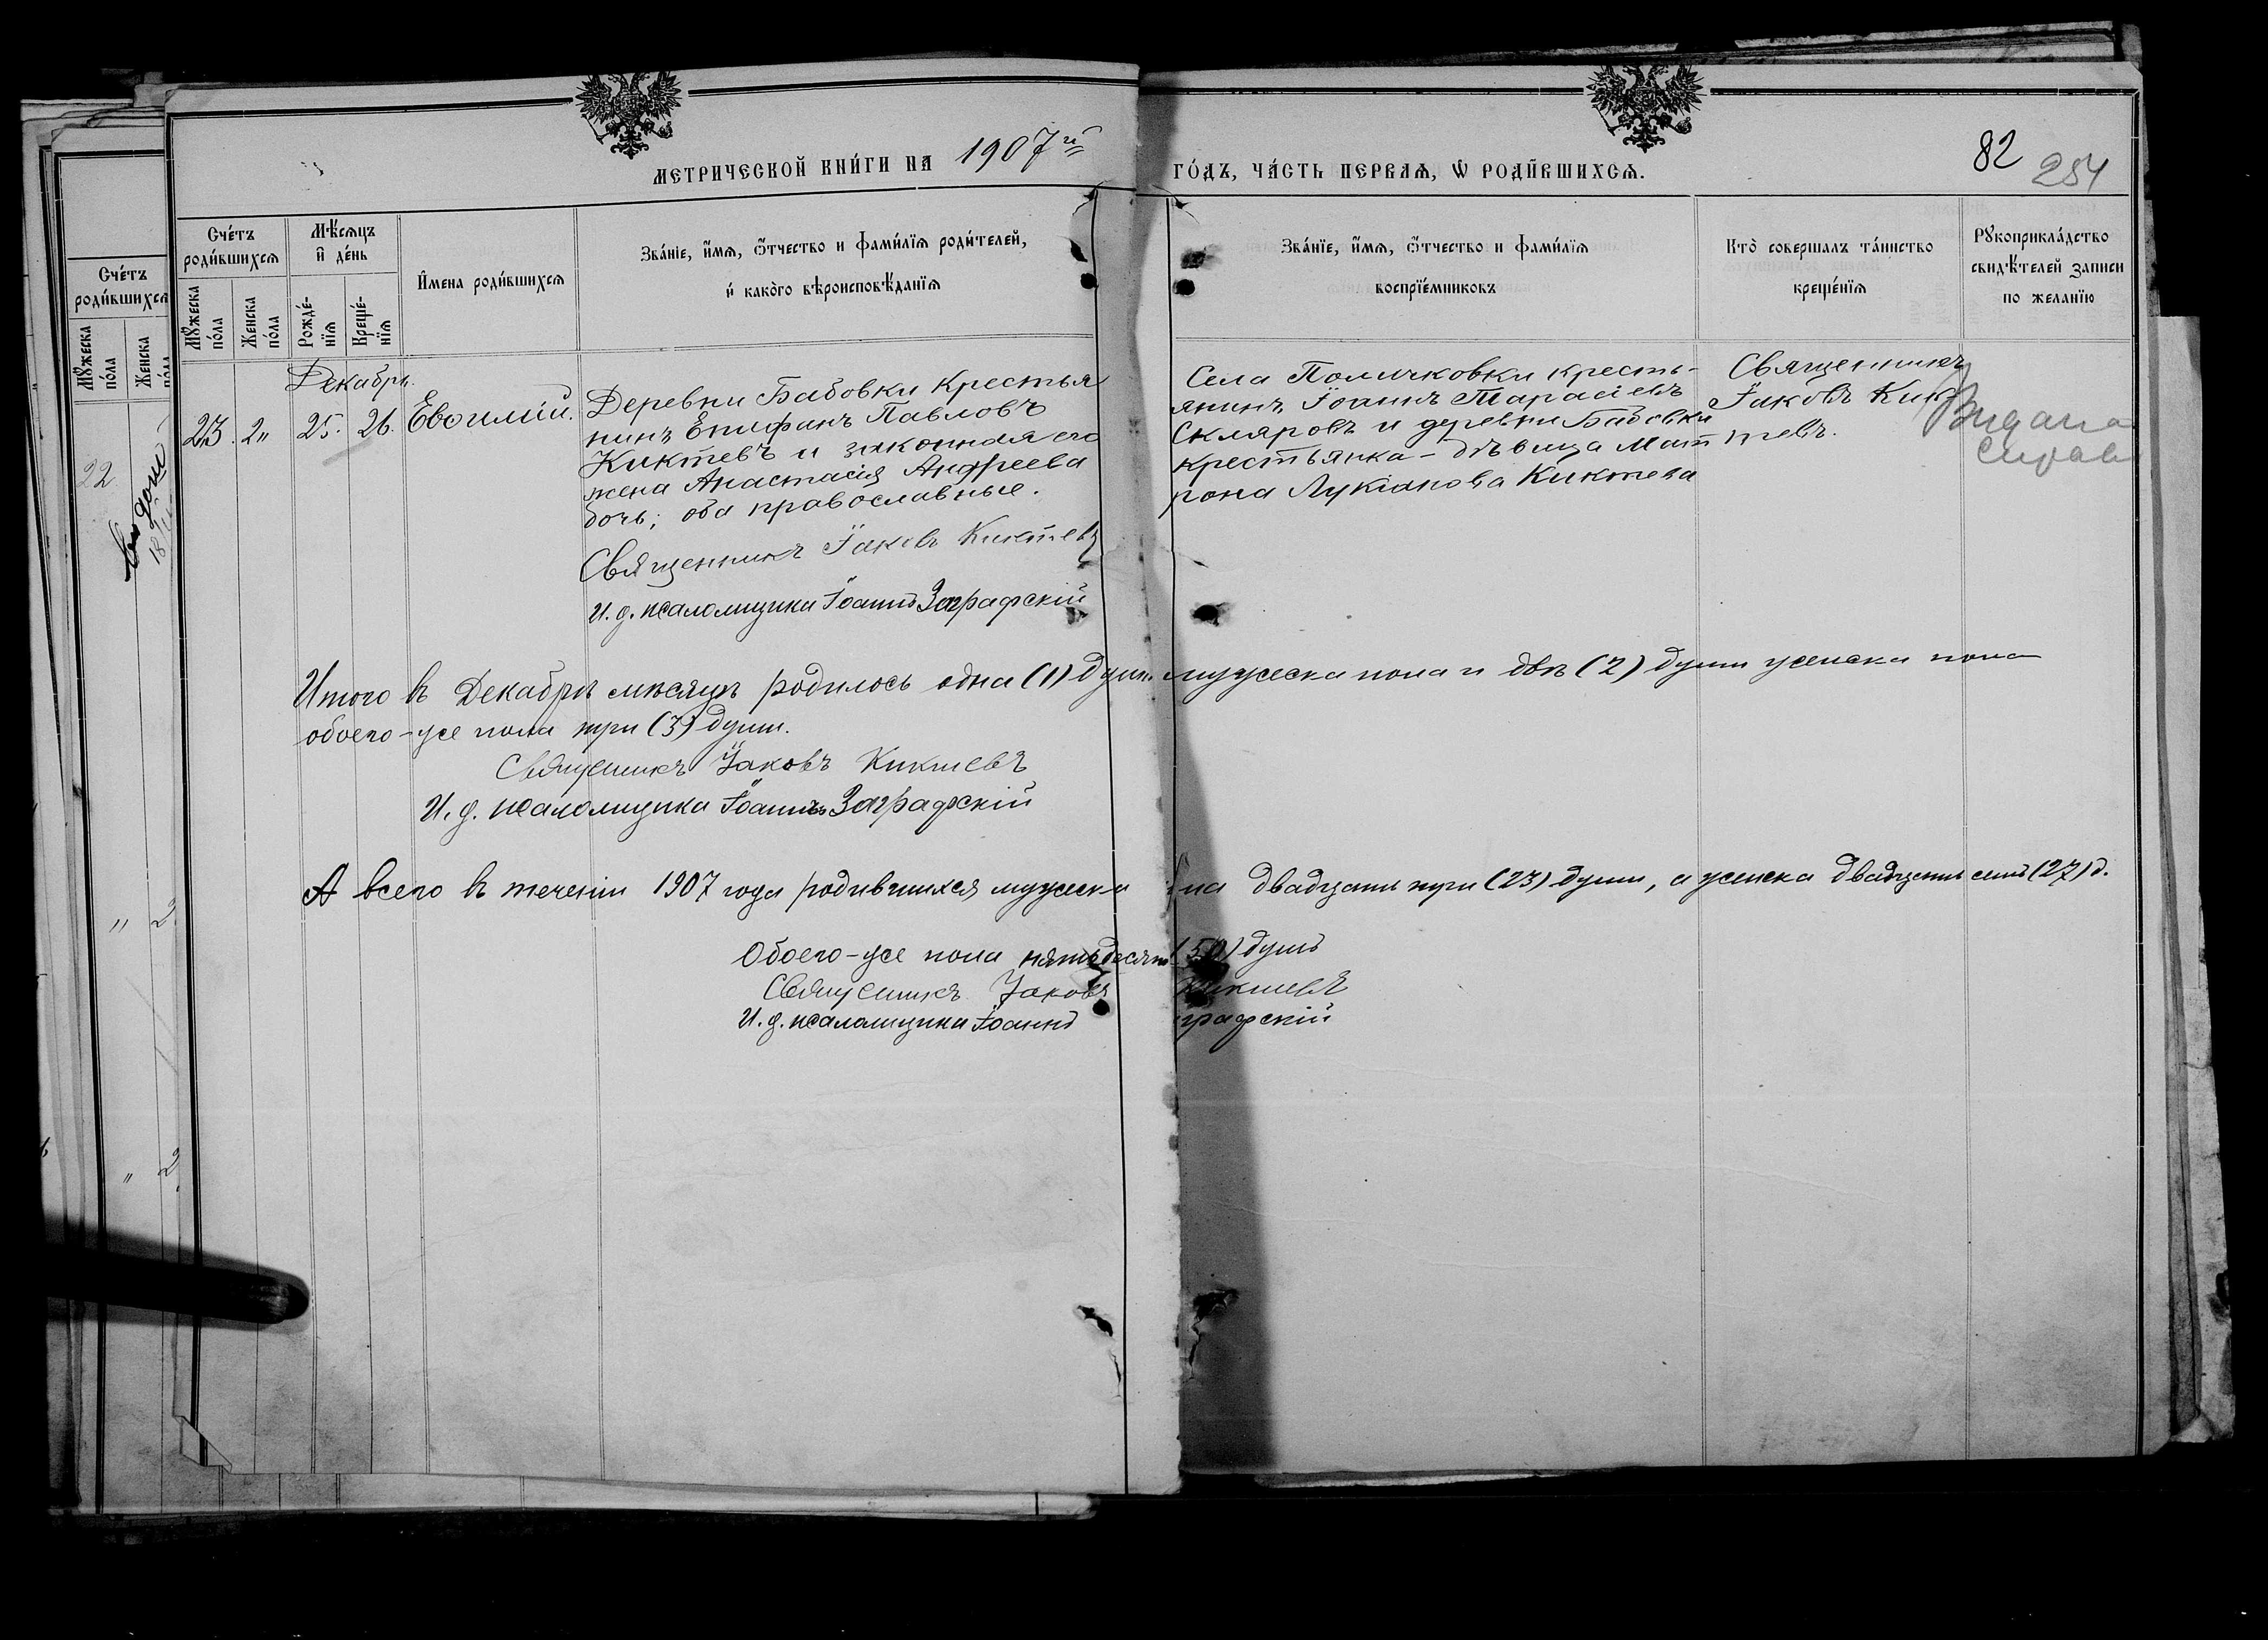 МЕТРИЧЕСКОЙ КНИ́ГИ НА 1907й
ГО́ДЪ, ЧА́СТЬ ПЕРВАЯ, Ѡ РОДИ́ВШИХСѦ.
82
254
Сче́тъ роди́вшихсѧ
Мꙋжеска по́ла
Женска по́ла
Мѣсѧцъ и́ де́нь
Рожде́нїѧ
Креще́нїѧ
И҆мена роди́вшихсѧ
Зва́нїе, и҆́мѧ, ѻ҆́тчество и фами́лїѧ роди́телей,
и҆ како́го вѣроисповѣ́данїѧ
Зва́нїе, и҆́мѧ, ѻ҆́тчество и фами́лїѧ
воспрїе́мниковъ
Кто̀ совершалъ та́инство
креще́нїѧ
Рꙋкоприкла́дство
свидѣ́телей записи
по жела́нїю
Сче́тъ
роди́вшихсѧ
Мꙋжеска по́ла
Женска по́ла
22
Декабрь.
23. 2„ 25. 26. Евѳимій.
Деревни Бабовки крестья
нинъ Епифанъ Павловъ
Киктевъ и законная его
жена Анастасія Андреева
дочь; оба православные.
Священникъ Іаковъ Киктевъ
И. д. псаломщика Іоаннъ Заграфскій
Села Поличковки кресть-
янинъ Іоаннъ Тарасіевъ
Скляровъ и деревни Бабовки
крестьянка - дѣвица Мат
рона Лукіанова Киктева
Священникъ
Іаковъ Кик
тевъ.
Видана
Справ
Итого въ Декабрѣ мѣсяцѣ родилось одна (1) душа мужеска пола и двѣ (2) души женска пола
обоего-же пола три (3) души.
Священникъ Іаковъ Киктевъ
И. д. псаломщика Іоаннъ Заграфскій
А всего въ теченіи 1907 года родившихся мужеска пола двадцать три (23) души, а женска двадцать семь (27) д.
Обоего-же пола пятьдесятъ (50) душъ
Священникъ Іаковъ Киктевъ
И. д. псаломщика Іоаннъ графскій